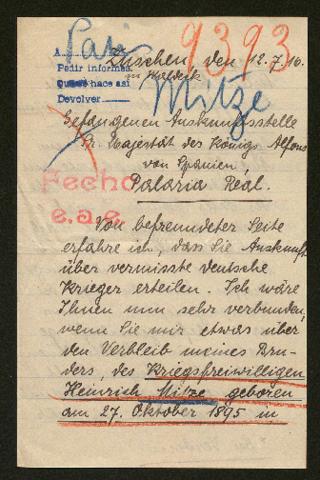 9393
Paris
A
Pedir informes
hace así
Devolver
Züschen den 12.7.16.
in Waldeck
Mitze
Gefangenen Auskunftsstelle
Sr. Majestät des Königs Alfons
von Spanien,
Palaria Real.
Fecho
e.a.e.
Von befreundeter Seite
erfahre ich, dass Sie Auskunft
über vermisste deutsche
Krieger erteilen. Ich wäre
Ihnen nun sehr verbunden,
wenn Sie mir etwas über
den Verbleib meines Bru-
ders, des Kriegsfreiwilligen
Heinrich Mitze, geboren
am 27. Oktober 1895 in